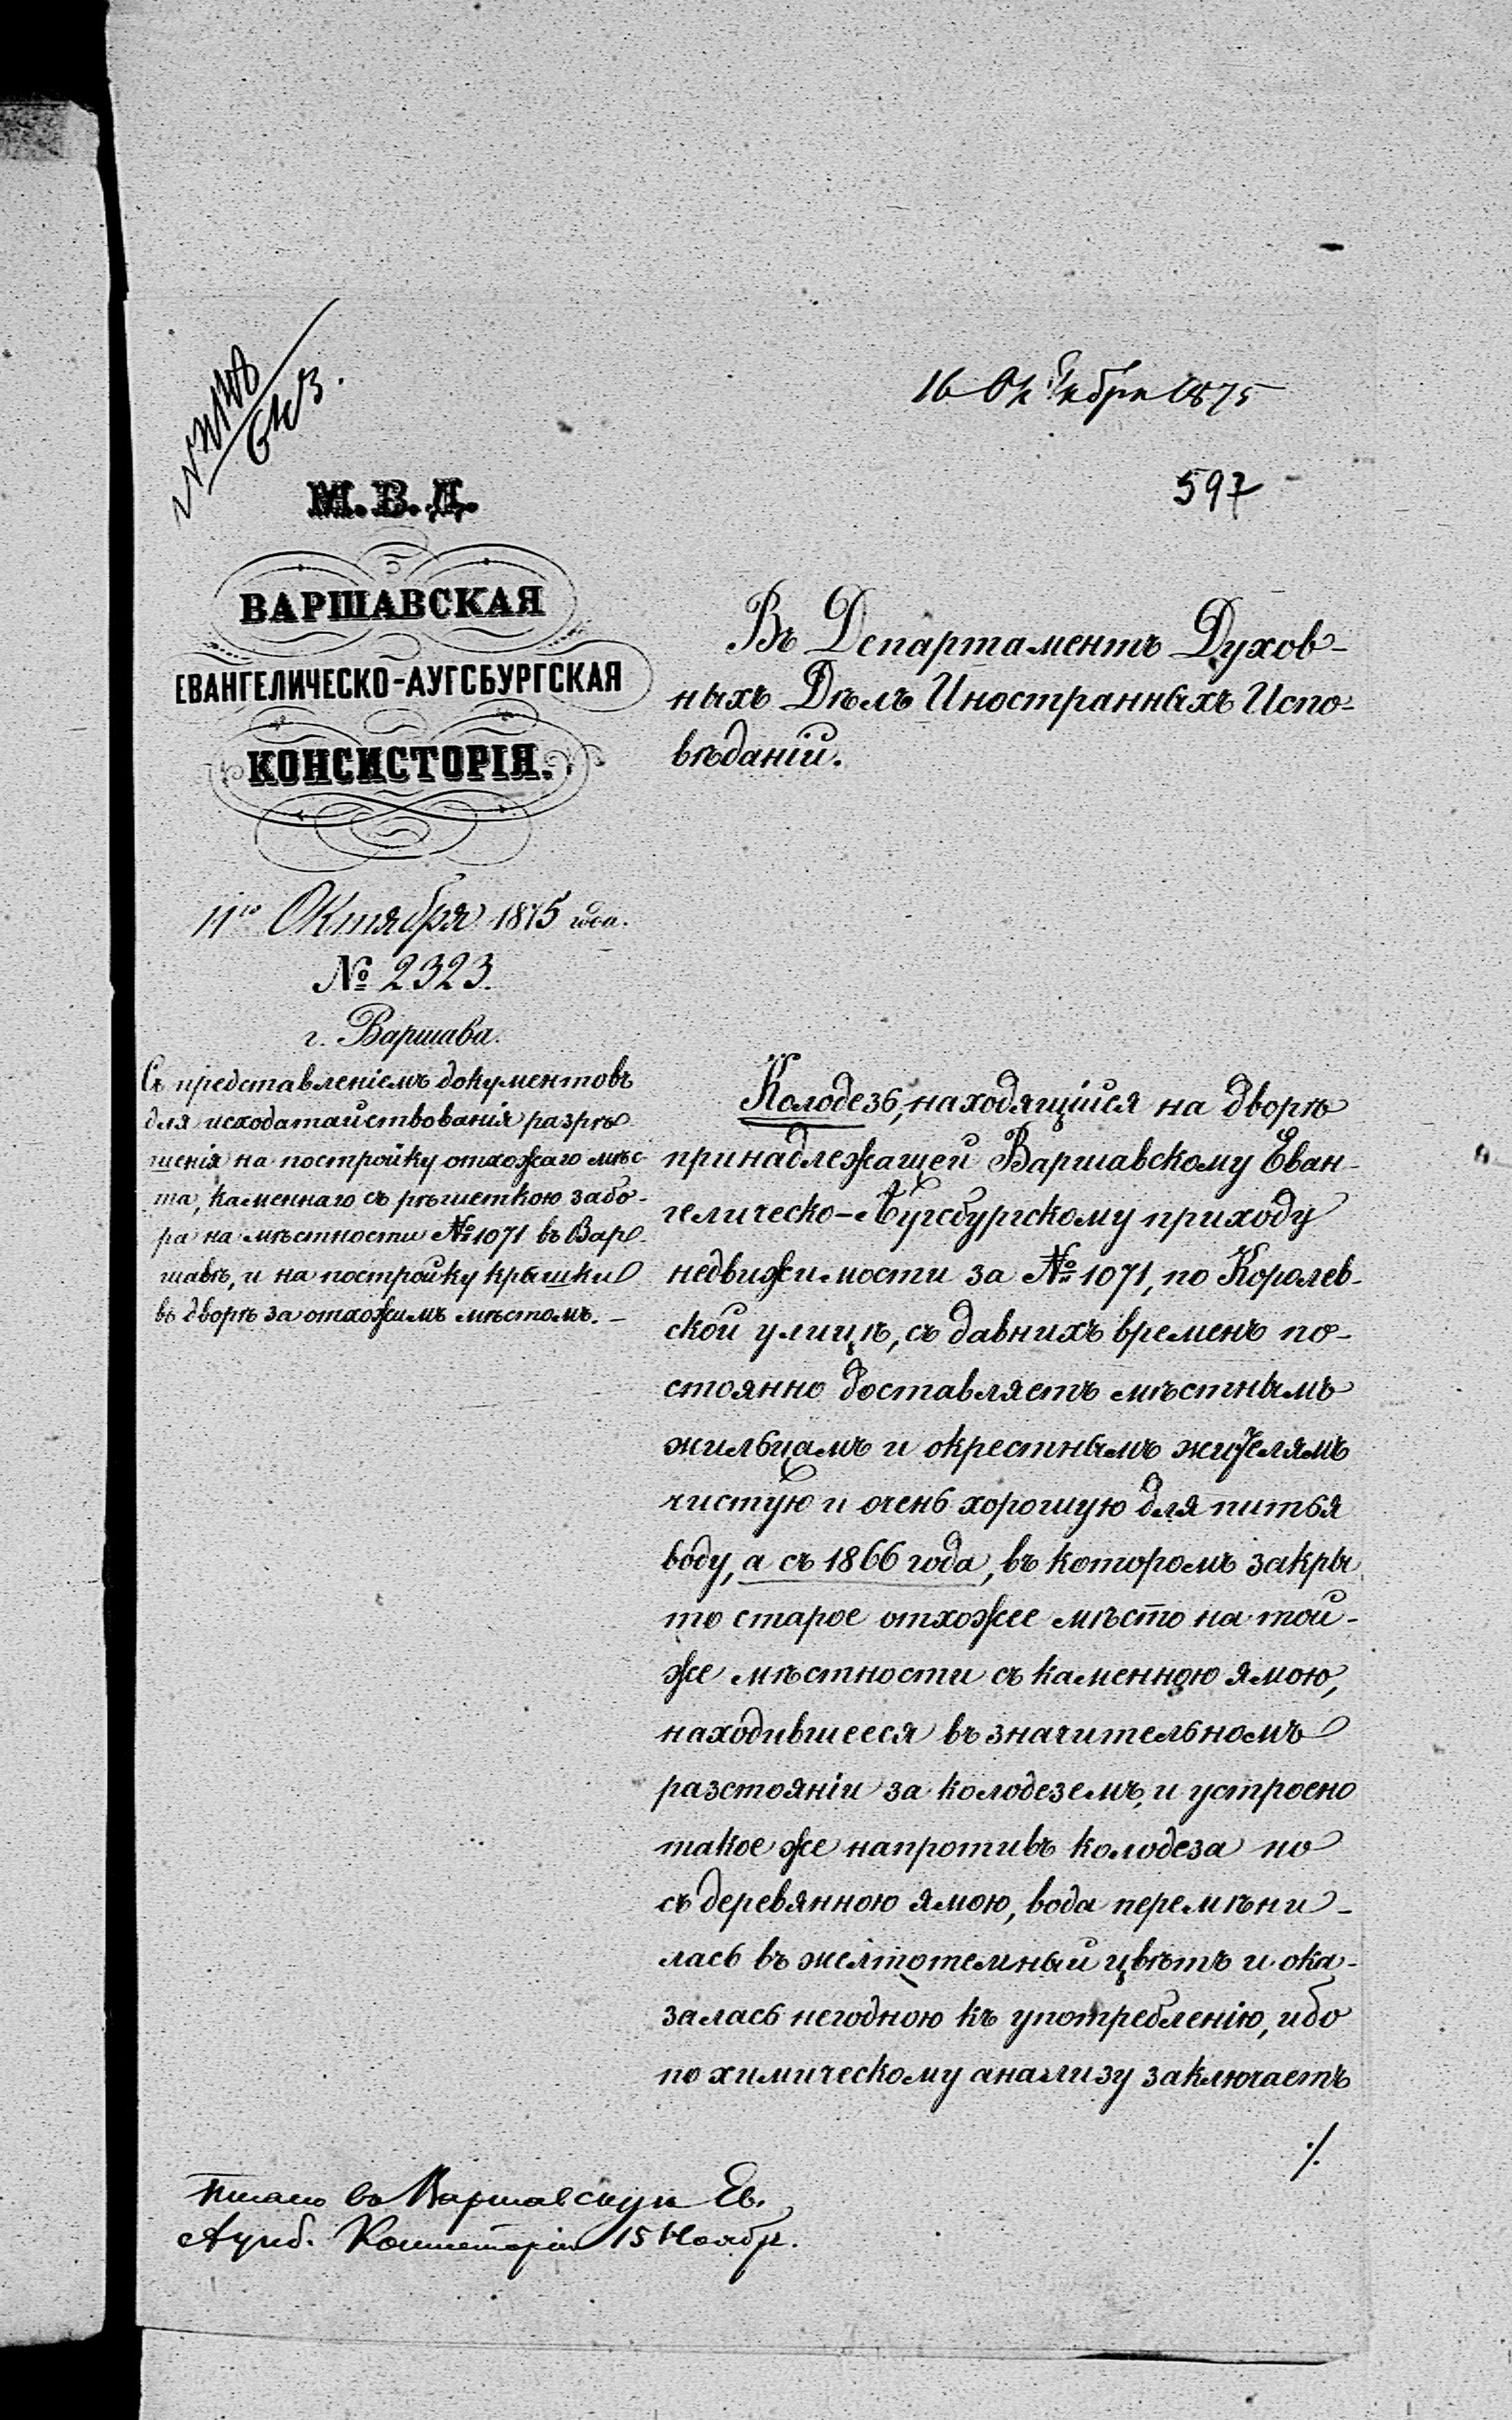 16 Октября 1875
597
М. В. Д.
ВАРШАВСКАЯ
ЕВАНГЕЛИЧЕСКО-АУГСБУРГСКАЯ
КОНСИСТОРІЯ.
11го Октября 1875 года.
№ 2323.
г. Варшава.
Съ представленіемъ документовъ
для исходатайствованія разрѣ-
шенія на постройку отхожаго мѣс-
та, каменнаго съ рѣшеткою забо-
ра на мѣстности №1071 въ Вар-
шавѣ, и на постройку крышки
въ дворѣ за отхожимъ мѣстомъ. –
Въ Департаментъ Духов-
ныхъ Дѣлъ Иностранныхъ Испо-
вѣданій.
Колодезь, находящійся на дворѣ
принадлежащей Варшавскому Еван-
гелическо-Аугсбургскому приходу
недвижимости за №1071, по Королев-
ской улицѣ, съ давнихъ временъ по-
стоянно доставляетъ мѣстнымъ
жильцамъ и окрестнымъ жителямъ
чистую и очень хорошую для питья
воду, а съ 1866 года, въ которомъ закры
то старое отхожее мѣсто на той-
же мѣстности съ каменною ямою,
находившееся въ значительномъ
разстояніи за колодеземъ, и устроено
такое же напротивъ колодеза но
съ деревянною ямою, вода перемѣни-
лась въ желтотемный цвѣтъ и ока-
залась негодною къ употребленію, ибо
по химическому анализу заключаетъ
./.
Писано въ Варшавскую Ев.
Аугсб. Консисторію 15 Ноябр.